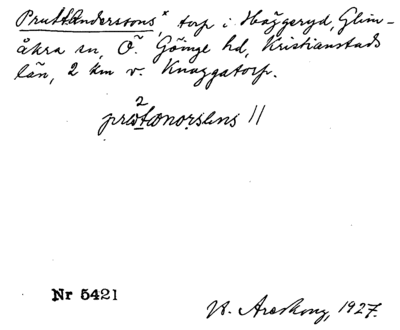 Prutt-Anderssons* torp i Häggeryd, Glim-
åkra sn, Ö. Göinge hd, Kristianstads
län, 2 km v. Knaggatorp.
Nr 5421
W. Areskoug, 1927.